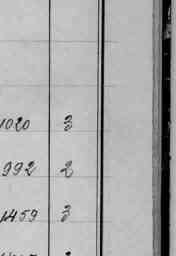 1020 3
992 2
1459 3